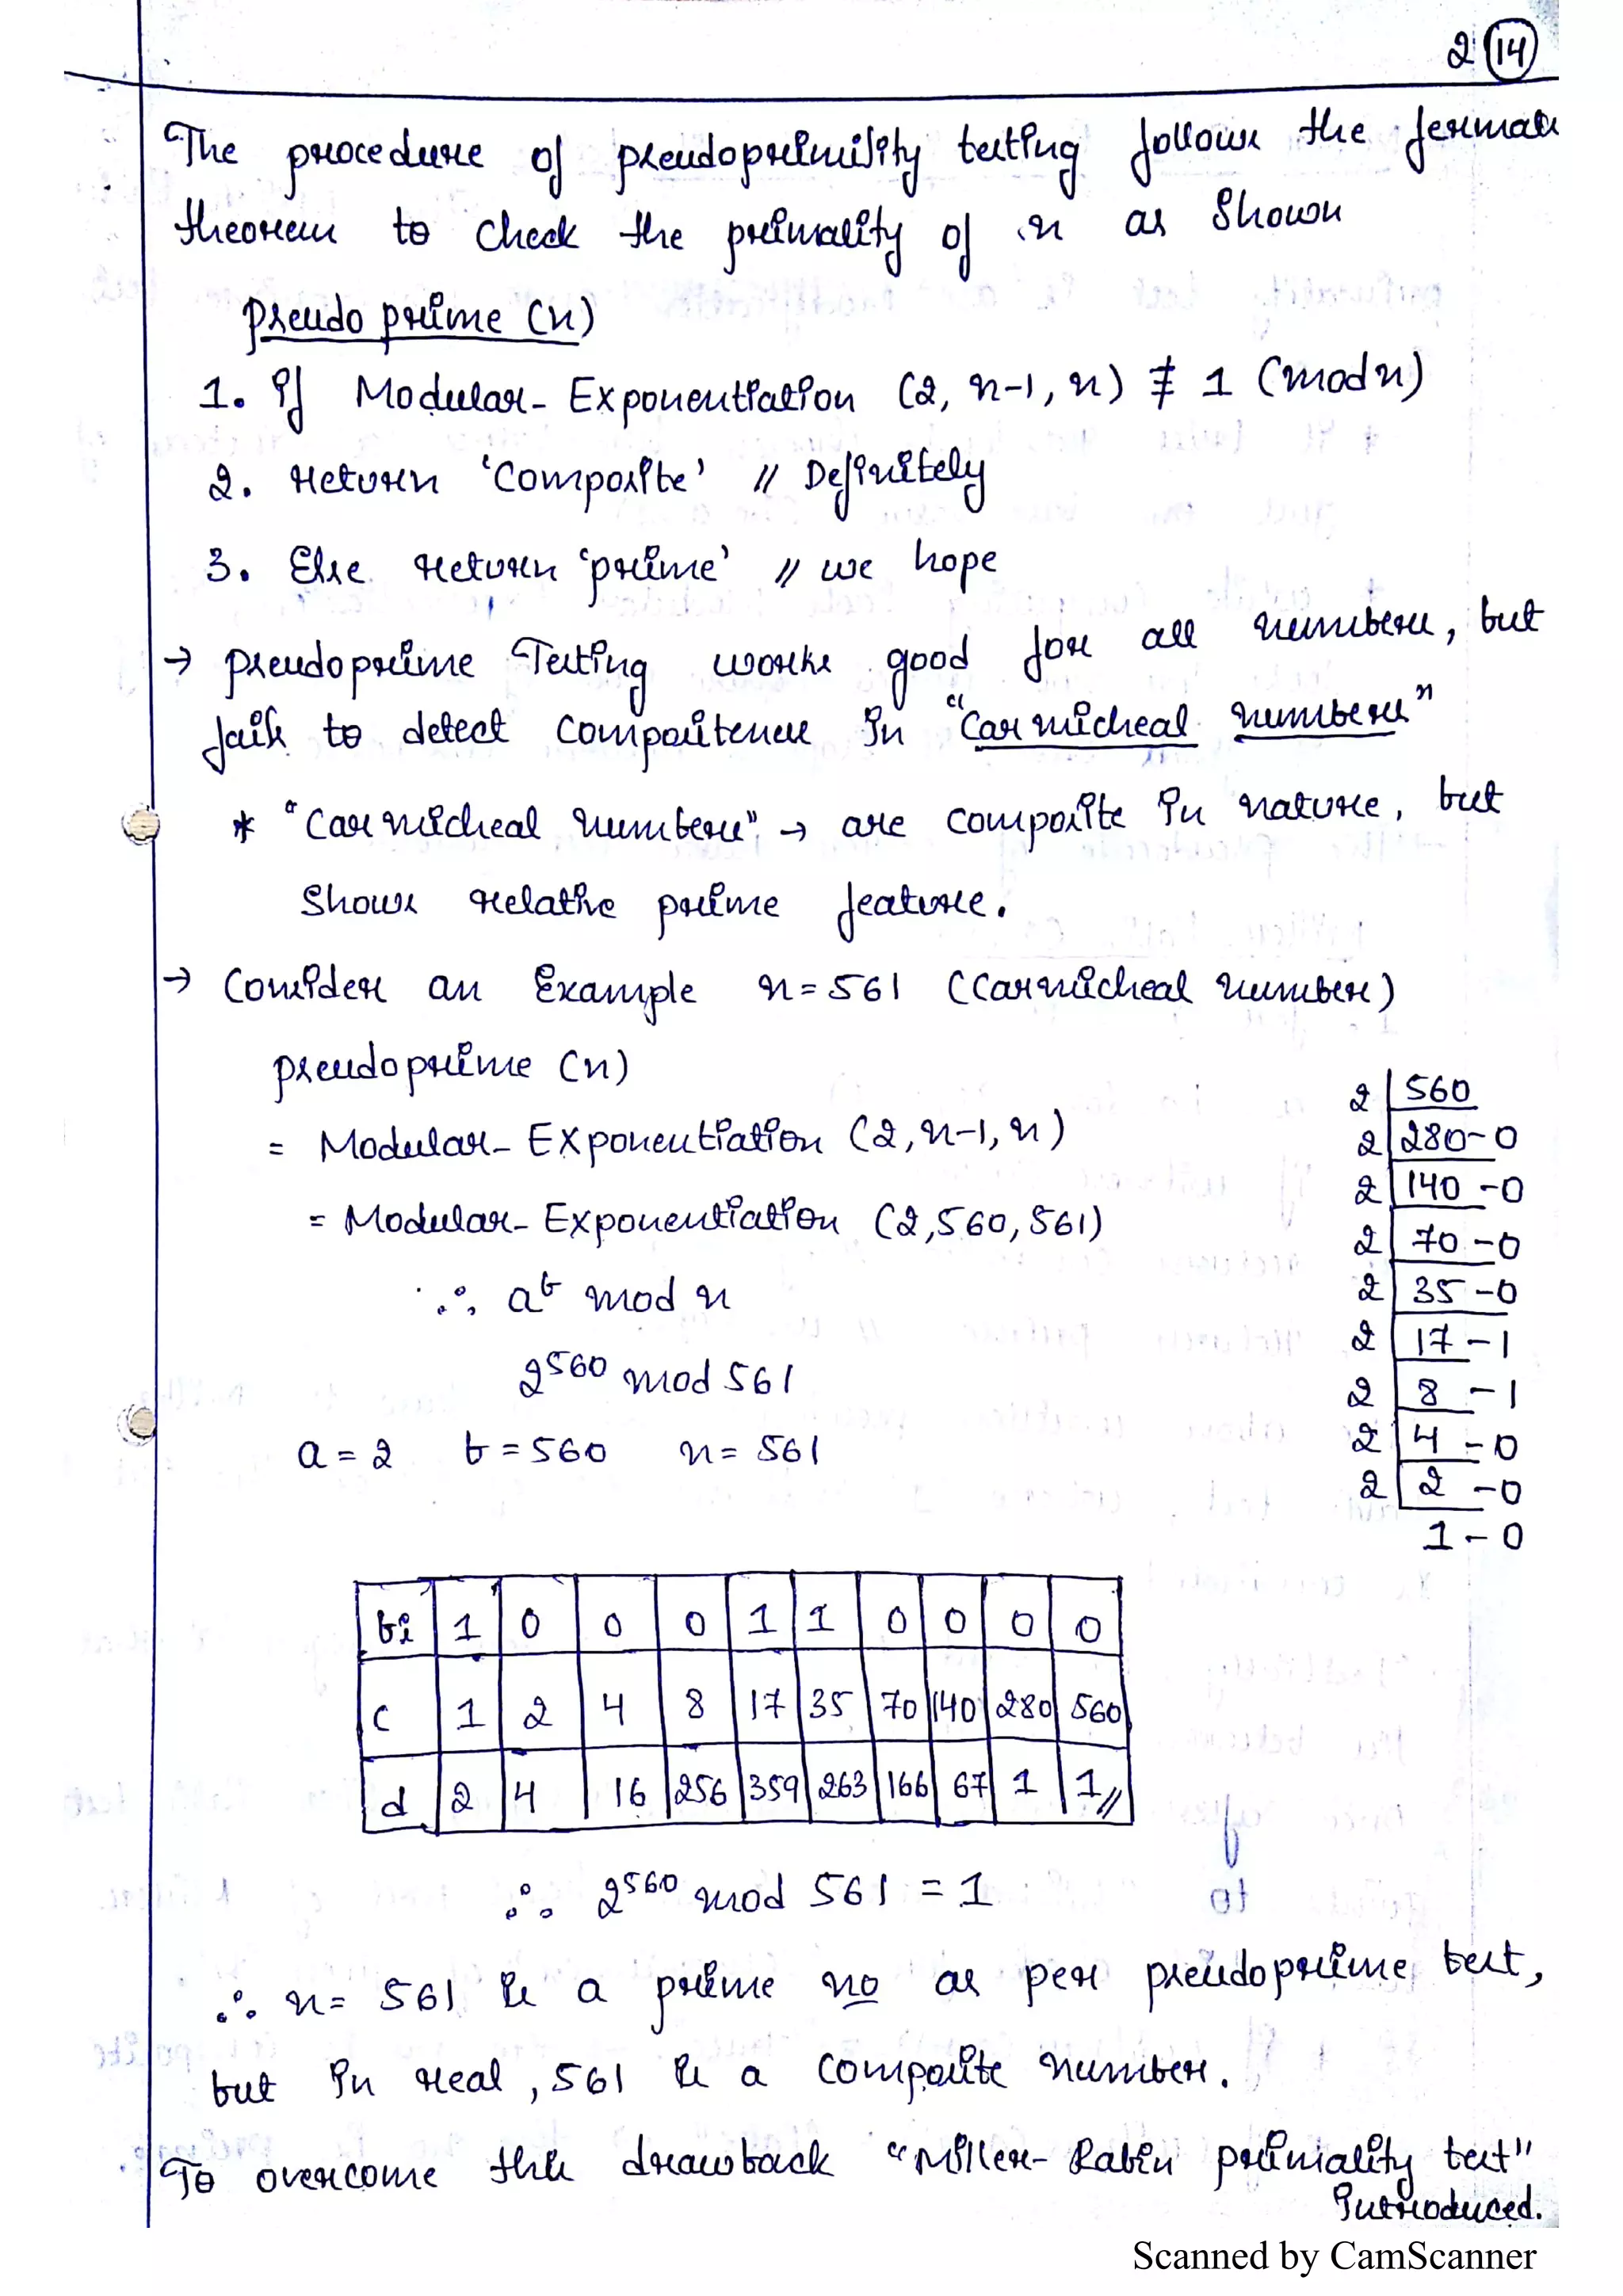 2 14
The procedure of pseudoprimisity testing follows the fermats
theorem to check the primality of n as Shown
Pseudo prime (n)
1. If Modular- Exponentiation (2, n-1, n) ≢ 1 (mod n)
2. return 'Composite' // Definitely
3. Else return 'prime' // we hope
→ pseudoprime Testing works good for all numbers, but
fails to detect compositeness in "Carmicheal numbers"
* "Carmicheal numbers" → are composite in nature, but
Shows relative prime feature.
→ Consider an Example n = 561 (Carmicheal number)
pseudoprime (n)
= Modular- Exponentiation (2, n-1, n)
= Modular- Exponentiation (2, 560, 561)
∴ a^b mod n
2^560 mod 561
a = 2 b = 560 n = 561
2 | 560
2 | 280 - 0
2 | 140 - 0
2 | 70 - 0
2 | 35 - 0
2 | 17 - 1
2 | 8 - 1
2 | 4 - 0
2 | 2 - 0
1 - 0
bi 1 0 0 0 1 1 0 0 0 0
c 1 2 4 8 17 35 70 140 280 560
d 2 4 16 256 359 263 166 67 1 1 //
∴ 2^560 mod 561 = 1
∴ n = 561 is a prime no as per pseudoprime test,
but in real, 561 is a composite number.
To overcome this drawback "Miller- Rabin primality test"
Introduced.
Scanned by CamScanner